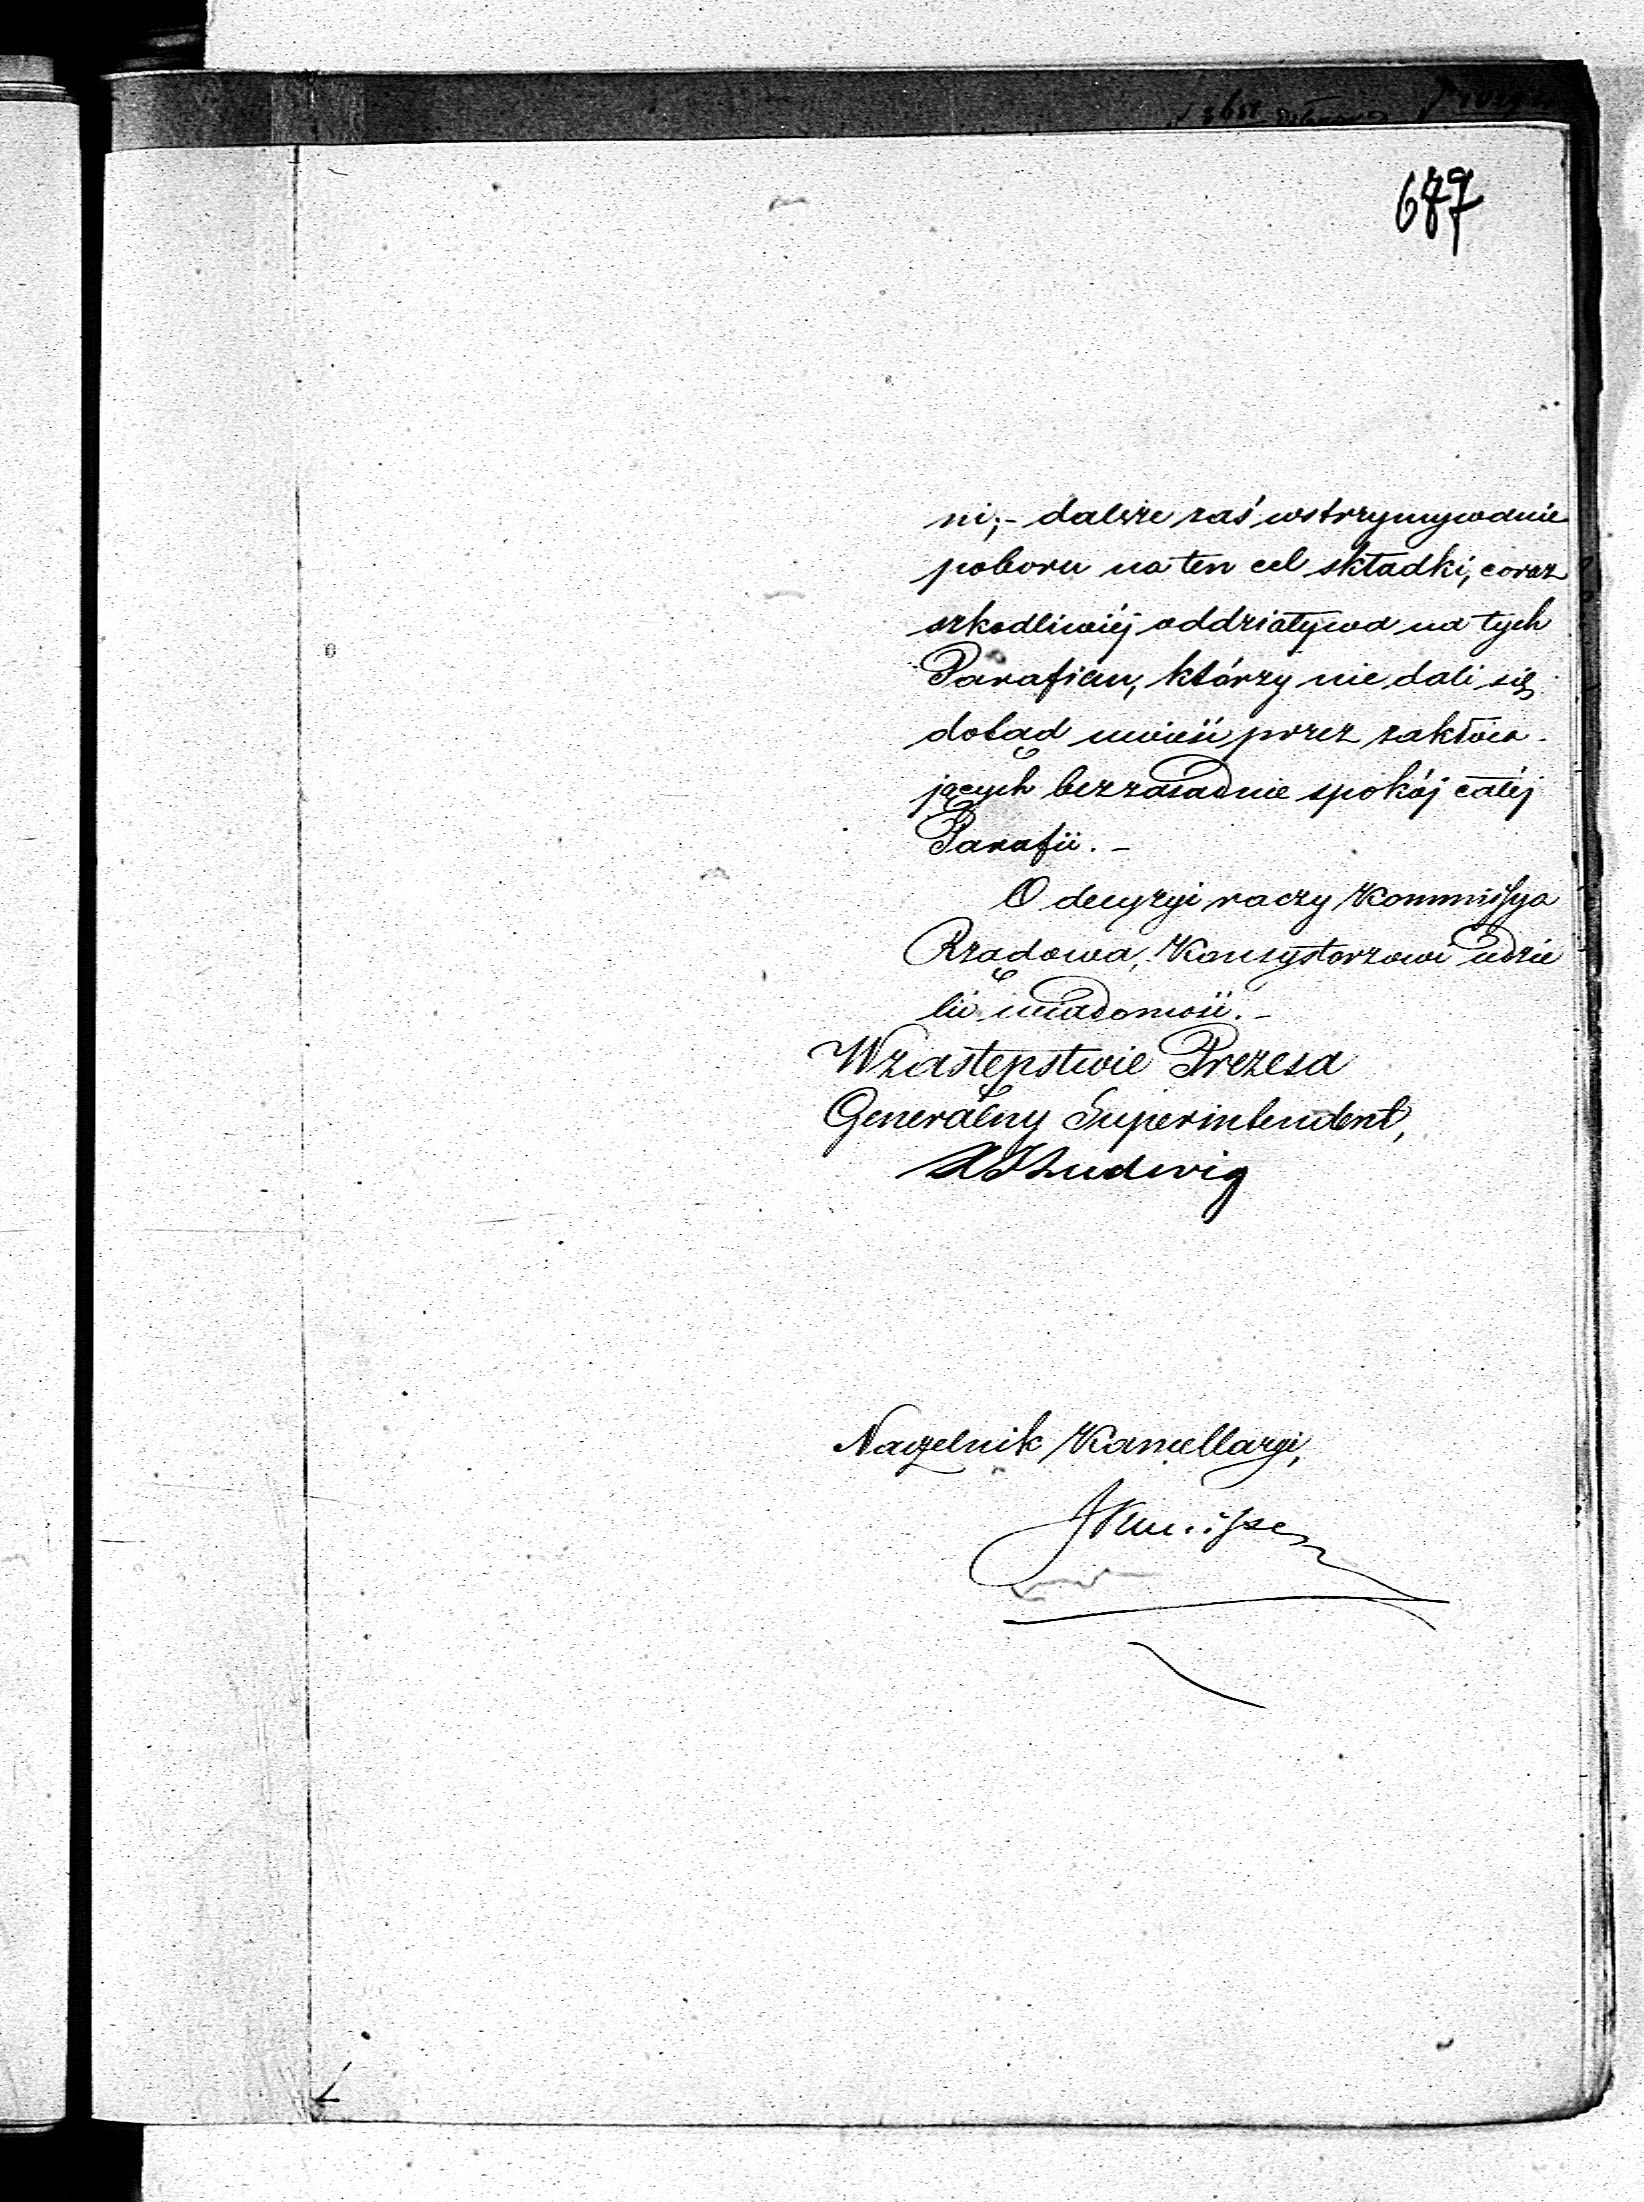 687
ni;- dalsze zaś wstrzymywanie
poboru na ten cel składki, coraz
szkodliwiéj oddziaływa na tych
Parafian, którzy nie dali się
dotąd uwieść przez zakłóca-
jących bezzasadnie spokój całéj
Parafii. -
O decyzyi raczy Kommissya
Rządowa, Konsystorzowi udzie
lić wiadomość. -
W zastępstwie Prezesa
Generalny Superintendent,
Ludwig
Naczelnik Kancellaryi,